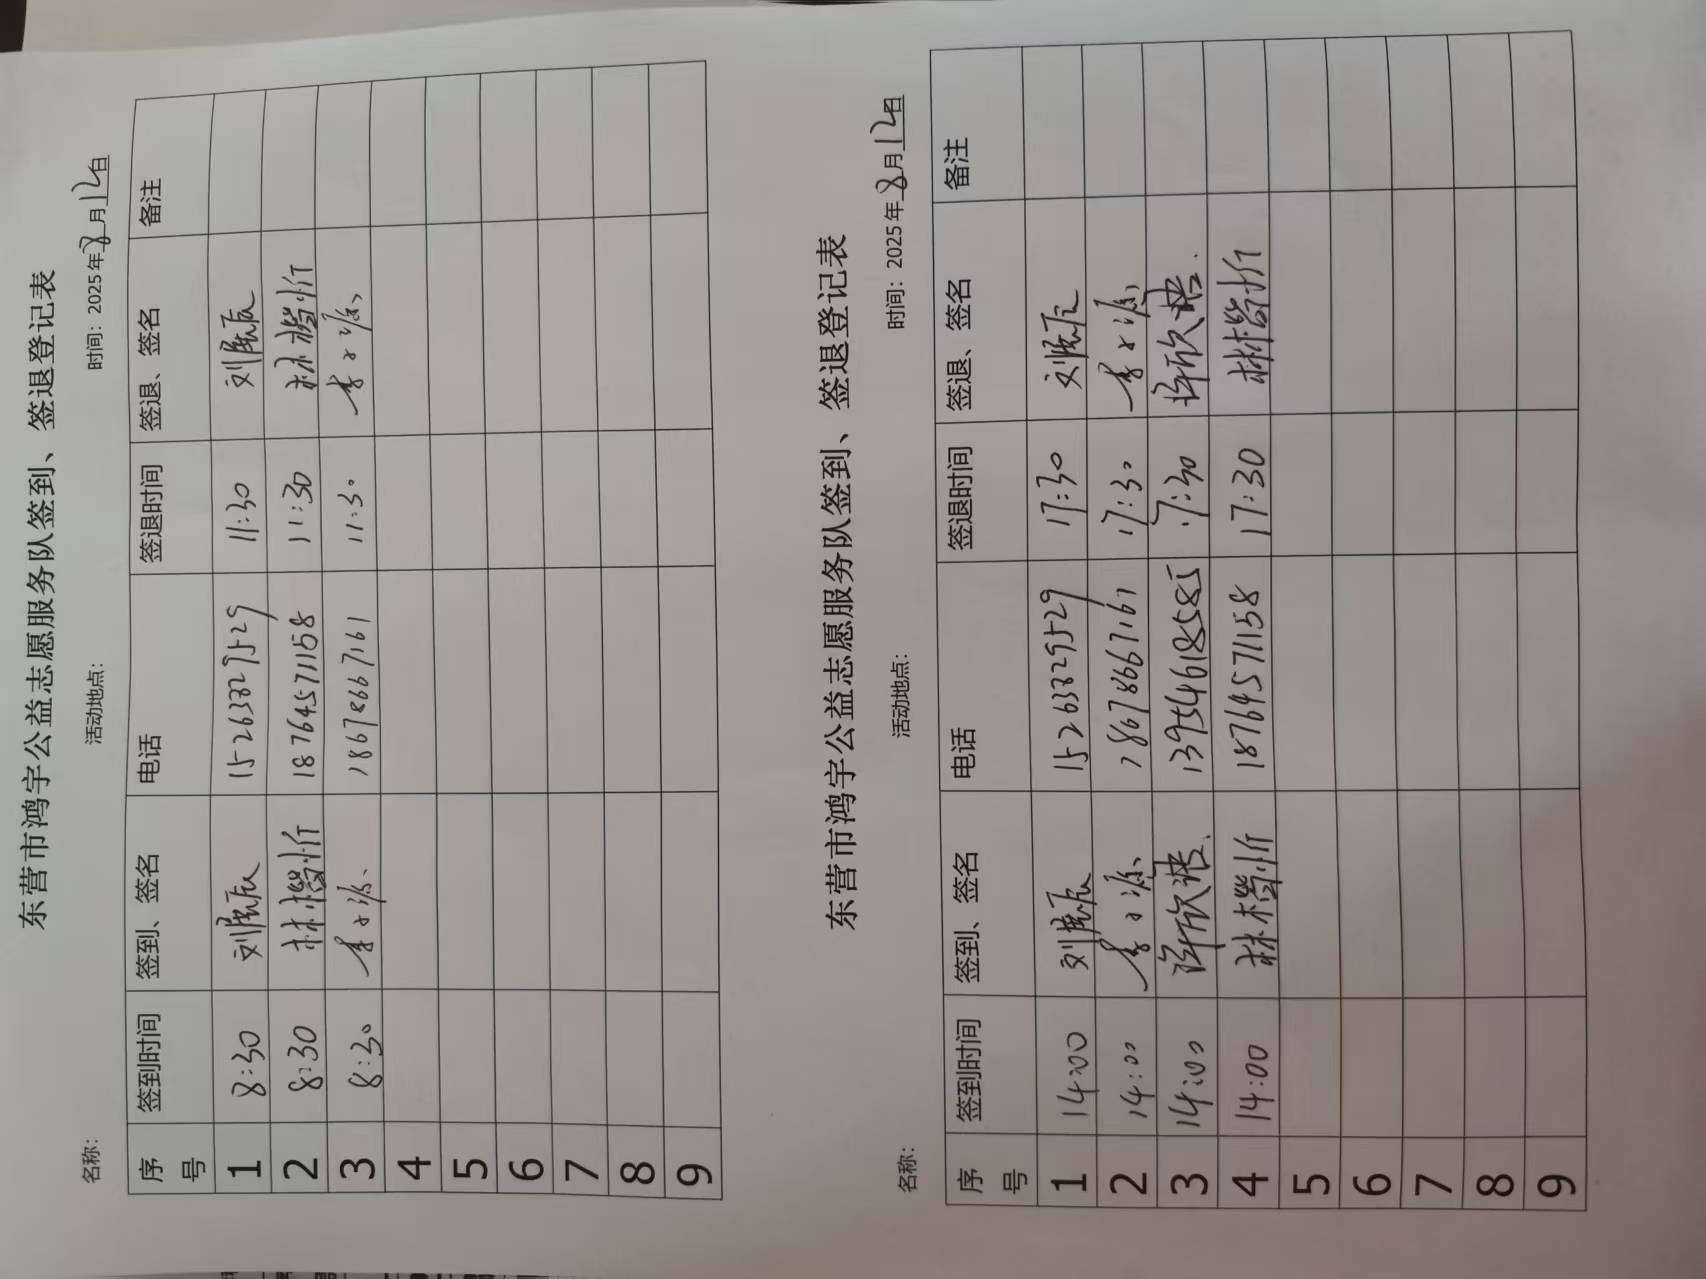 东营市鸿宇公益志愿服务队签到、签退登记表
名称: 活动地点: 时间：2025年8月12日
序号 签到时间 签到、签名 电话 签退时间 签退、签名 备注
1 8:30 刘 15263329529 11:30 刘
2 8:30 林 18764571158 11:30 林
3 8:30 李 18678667161 11:30 李
4
5
6
7
8
9
东营市鸿宇公益志愿服务队签到、签退登记表
名称: 活动地点: 时间：2025年8月12日
序号 签到时间 签到、签名 电话 签退时间 签退、签名 备注
1 14:00 刘 15263329529 17:30 刘
2 14:00 李 18678667161 17:30 李
3 14:00 许欣 13954618585 17:30 许欣
4 14:00 林 18764571158 17:30 林
5
6
7
8
9